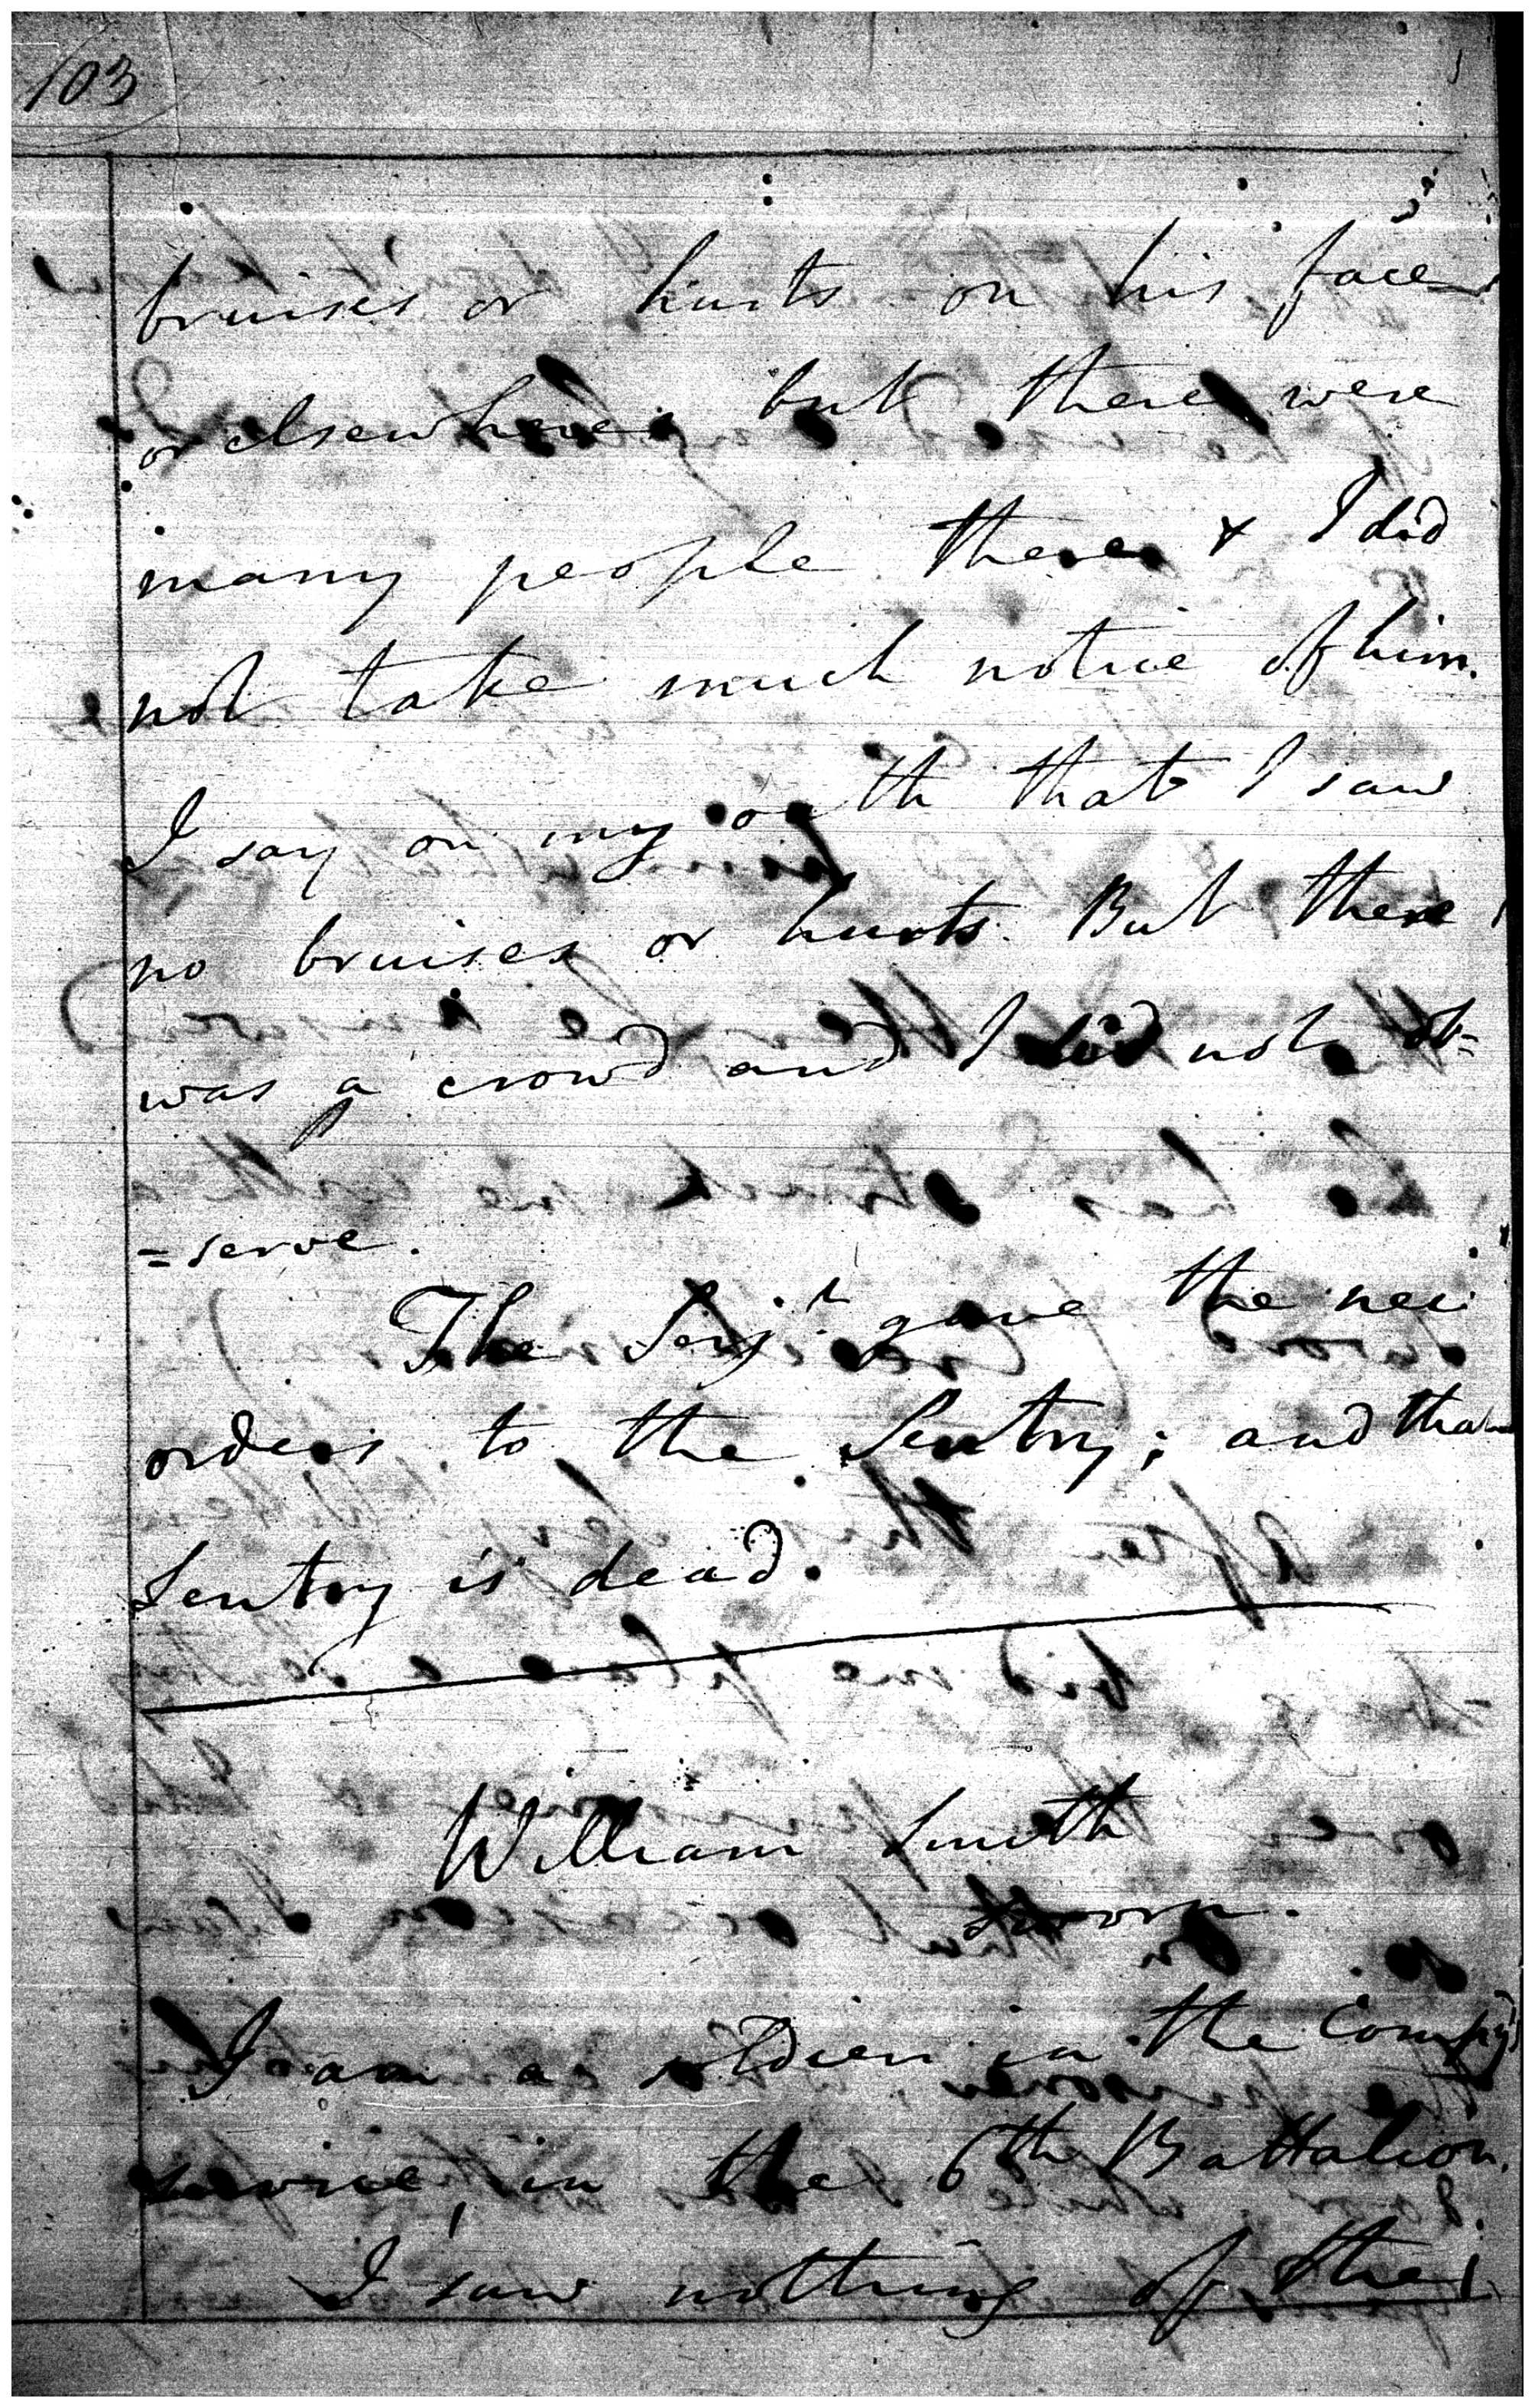 103
bruises or hurts on his face
or elsewhere, but there were
many people there & I did
not take much notice of him.
I say on my oath that I saw
no bruises or hurts. But there
was a crowd and I did not ob=
=serve.
The Serjt. gave the
orders to the Sentry; and that
Sentry is dead.
William Smith
Sworn.
I am a soldier in the Compy's
service, in the 6th Battalion.
I saw nothing of the